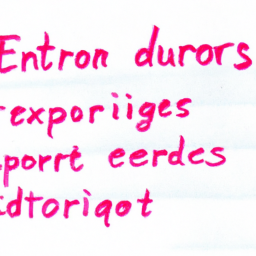 Entron durors
rexporiiges
porrt eerdes
idtoriqot